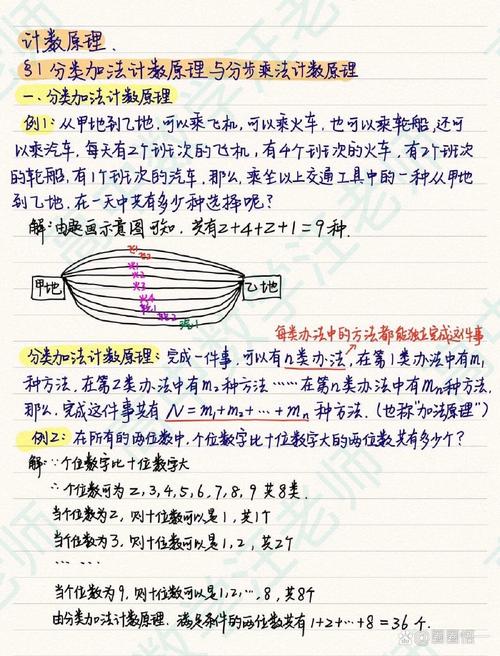 计数原理.
§1 分类加法计数原理与分步乘法计数原理
一、分类加法计数原理
例1: 从甲地到乙地,可以乘飞机,可以乘火车,也可以乘轮船,还可
以乘汽车,每天有2个班次的飞机,有4个班次的火车,有2个班次
的轮船,有1个班次的汽车,那么,乘坐以上交通工具中的一种从甲地
到乙地,在一天中共有多少种选择呢?
解:由题画示意图可知,共有2+4+2+1=9种.
飞1
飞2
火1
火2
甲地
火3
乙地
火4
汽1
每类办法中的方法都能独立完成这件事
分类加法计数原理:完成一件事,可以有n类办法,在第1类办法中有m₁
种方法,在第2类办法中有m₂种方法……在第n类办法中有mₙ种方法.
那么,完成这件事共有 N=m₁+m₂+…+mₙ 种方法.(也称"加法原理")
例2:在所有的两位数中,个位数字比十位数字大的两位数共有多少个?
解:∵个位数字比十位数字大
∴个位数可为2,3,4,5,6,7,8,9 共8类.
当个位数为2,则十位数可以是1,共1个
当个位数为3,则十位数可以是1,2,共2个
…… ……
当个位数为9,则十位数可以是1,2,…,8,共8个
由分类加法计数原理,满足条件的两位数共有1+2+…+8=36个.
高中数学汪老师